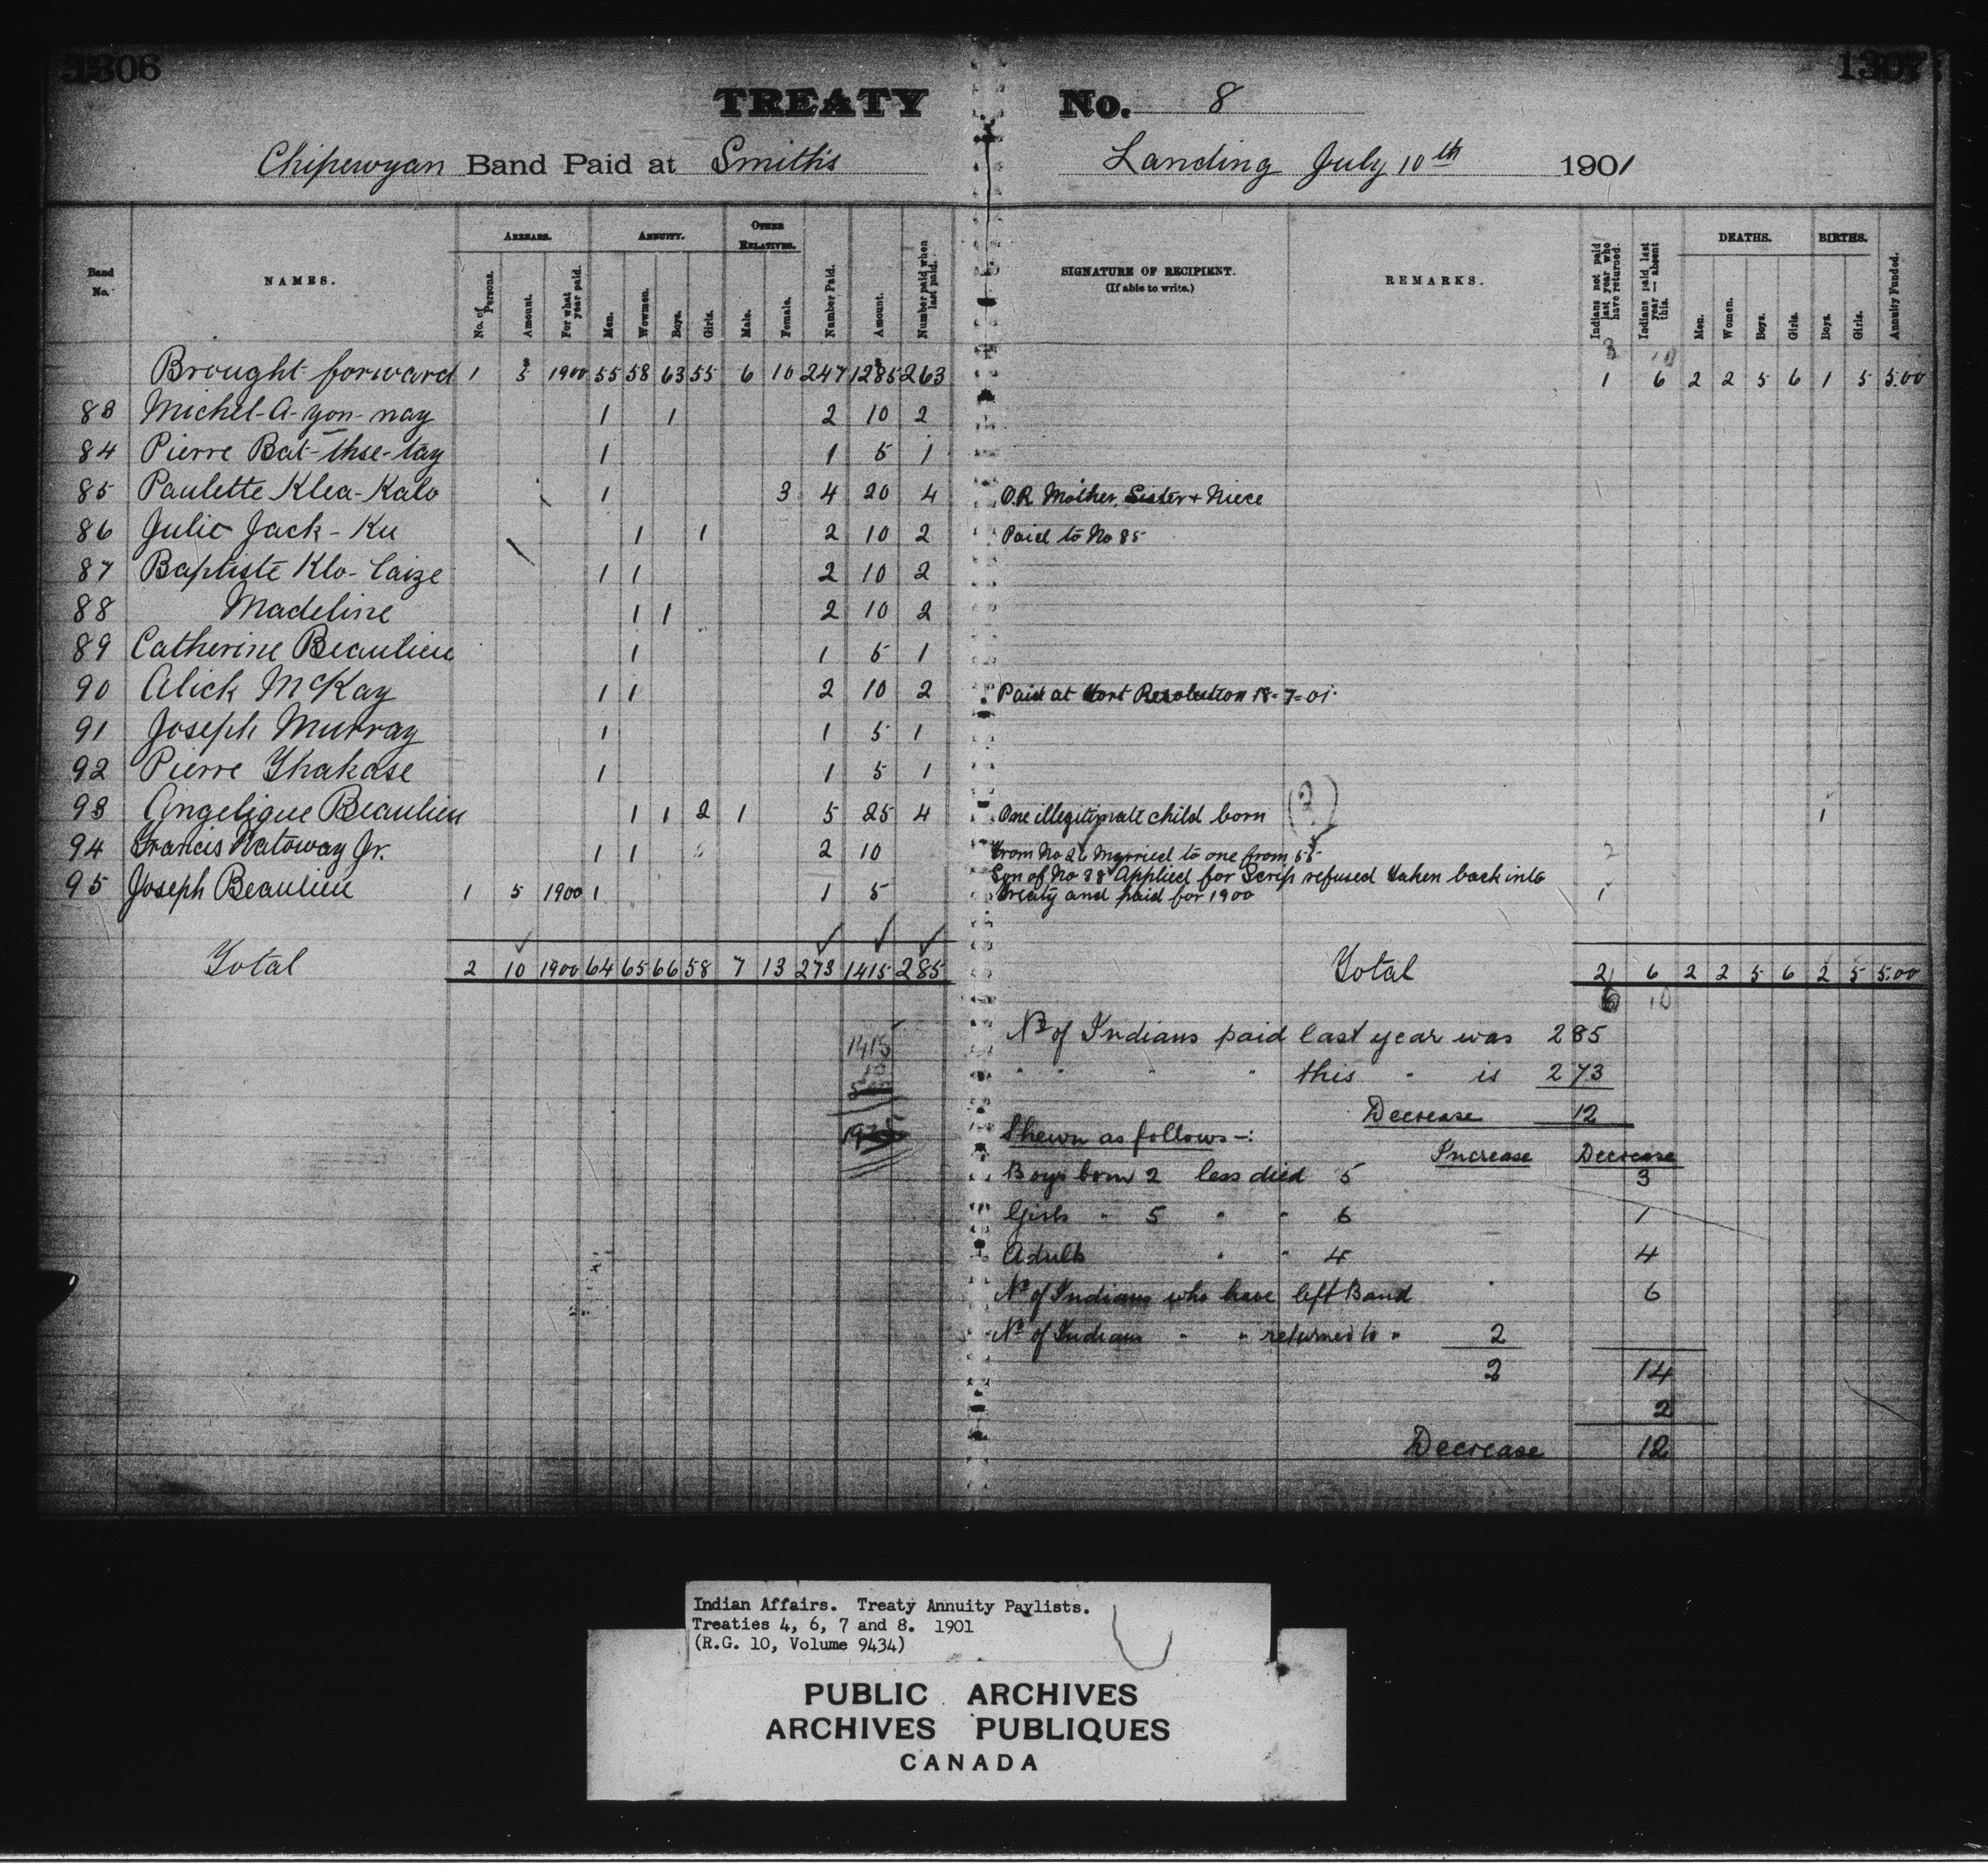 1306 1307
TREATY No. 8
Chipewyan Band Paid at Smith's Landing July 10th 1901
Band No. NAMES. ARREARS. ANNUITY. OTHER RELATIVES. Number Paid. Amount. Number paid when last paid. SIGNATURE OF RECIPIENT. (If able to write.) REMARKS. Indians not paid last year who have returned. Indians paid last year — absent this. DEATHS. BIRTHS. Annuity Funded.
No. of Persons. Amount. For what year paid. Men. Women. Boys. Girls. Male. Female. Men. Women. Boys. Girls. Boys. Girls.
Brought forward 1 5 1900 55 58 63 55 6 10 247 1285 263 1 6 2 2 5 6 1 5 5.00
83 Michel-A-yon-nay 1 1 2 10 2
84 Pierre Bat-thse-tay 1 1 5 1
85 Paulette Klea-Kalo 1 3 4 20 4 O.R. Mother, Sister + Niece
86 Julie Jack-Ku 1 1 2 10 2 Paid to No 85
87 Baptiste Klo-laize 1 1 2 10 2
88 Madeline 1 1 2 10 2
89 Catherine Beaulieu 1 1 5 1
90 Alick McKay 1 1 2 10 2 Paid at Fort Resolution 18-7-01.
91 Joseph Murray 1 1 5 1
92 Pierre Thakase 1 1 5 1
93 Angelique Beaulieu 1 1 2 1 5 25 4 One illegitimate child born (2) 1
94 Francis Natoway Jr. 1 1 2 10 From No 26 Married to one from 55 2
95 Joseph Beaulieu 1 5 1900 1 1 5 Son of No 88 Applied for Scrip refused taken back into
treaty and paid for 1900 1
Total 2 10 1900 64 65 66 58 7 13 273 1415 285 Total 2 6 2 2 5 6 2 5 5.00
6 10
1415
10
No of Indians paid last year was 285
" " " " this " is 273
Decrease 12
Shewn as follows—:
Increase Decrease
Boys born 2 less died 5 3
Girls " 5 " " 6 1
Adults " " 4 4
No of Indians who have left Band 6
No of Indians " " returned to " 2
2 14
2
Decrease 12
Indian Affairs. Treaty Annuity Paylists.
Treaties 4, 6, 7 and 8. 1901
(R.G. 10, Volume 9434)
PUBLIC ARCHIVES
ARCHIVES PUBLIQUES
CANADA